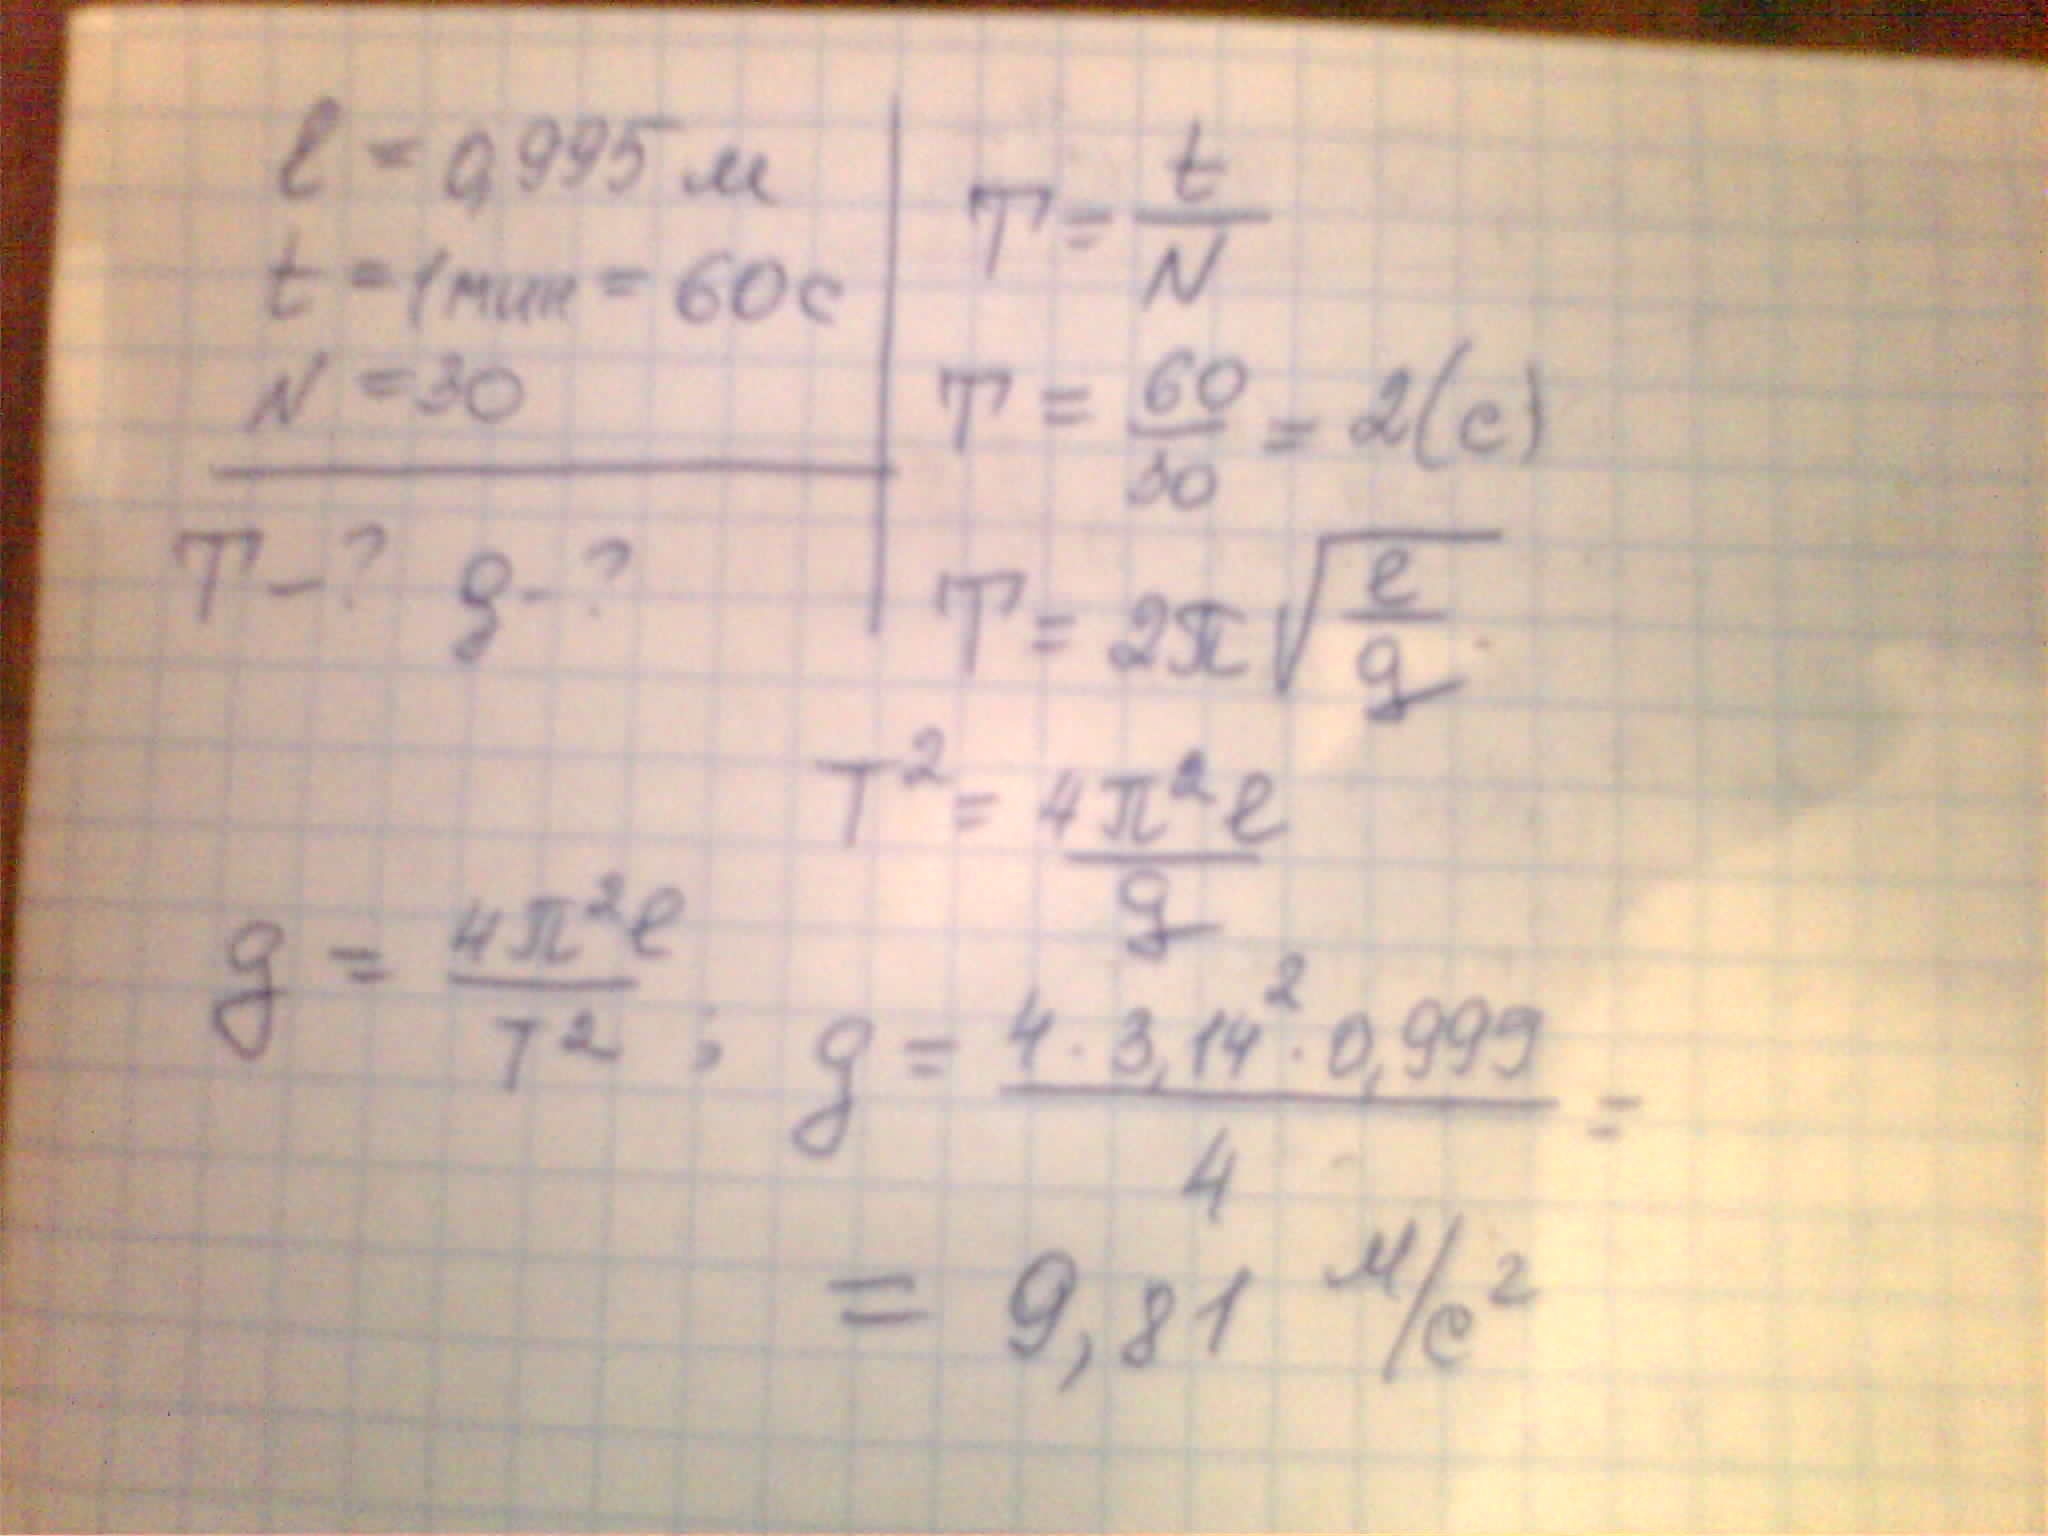 l = 0,995 м
t = 1 мин = 60 с
N = 30
T - ? g - ?
T = t/N
T = 60/30 = 2 (с)
T = 2π√(l/g)
T² = 4π²l/g
g = 4π²l/T² ; g = 4 · 3,14² · 0,999/4 =
= 9,81 м/с²